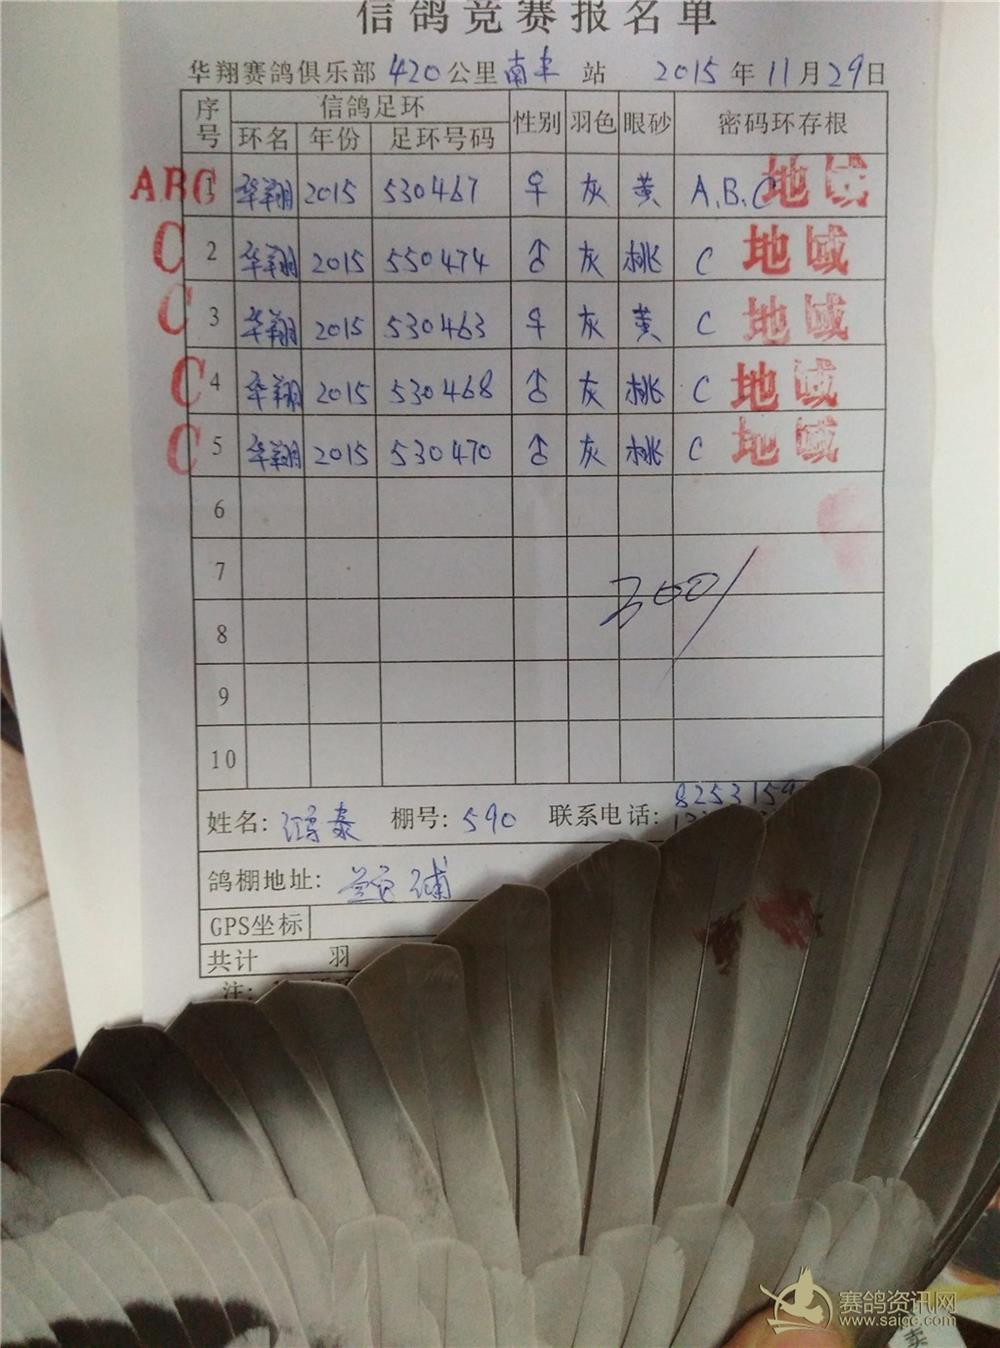 信鸽竞赛报名单
华翔赛鸽俱乐部 420公里南丰 站 2015年11月29日
序号 信鸽足环 性别 羽色 眼砂 密码环存根
环名 年份 足环号码
ABC 1 华翔 2015 530467 ♀ 灰 黄 A.B.C 地域
C 2 华翔 2015 550474 ♂ 灰 桃 C 地域
C 3 华翔 2015 530463 ♀ 灰 黄 C 地域
C 4 华翔 2015 530468 ♂ 灰 桃 C 地域
C 5 华翔 2015 530470 ♂ 灰 桃 C 地域
6
7
300/
8
9
10
姓名: 鸿泰 棚号: 590 联系电话: 8253159
鸽棚地址:
GPS坐标
共计 羽
注:
赛鸽资讯网
www.saige.com
卖